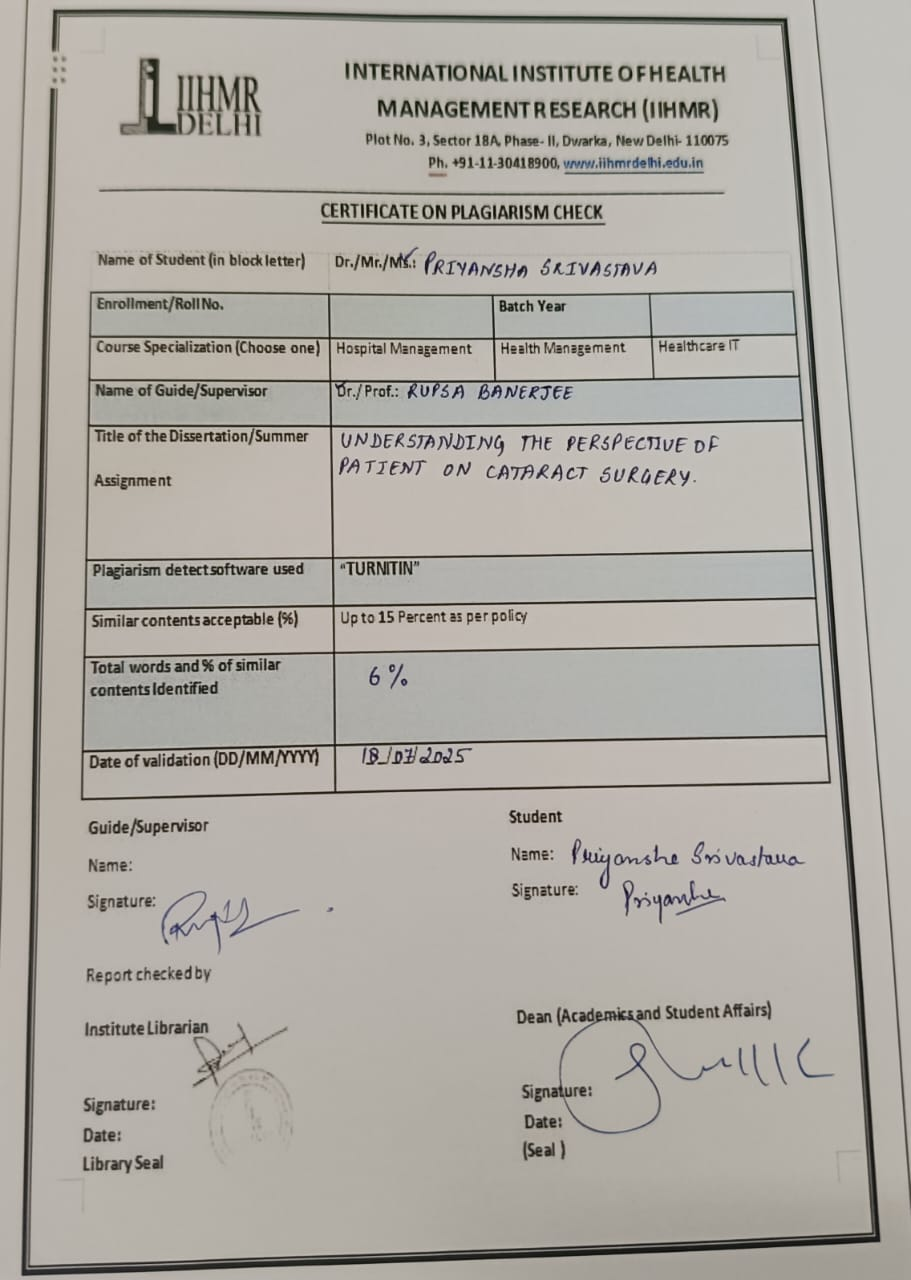 IIHMR
DELHI
INTERNATIONAL INSTITUTE OF HEALTH
MANAGEMENT RESEARCH (IIHMR)
Plot No. 3, Sector 18A, Phase- II, Dwarka, New Delhi- 110075
Ph. +91-11-30418900, www.iihmrdelhi.edu.in
CERTIFICATE ON PLAGIARISM CHECK
Name of Student (in block letter) Dr./Mr./Ms.: PRIYANSHA SRIVASTAVA
Enrollment/Roll No. Batch Year
Course Specialization (Choose one) Hospital Management Health Management Healthcare IT
Name of Guide/Supervisor Dr./Prof.: RUPSA BANERJEE
Title of the Dissertation/Summer
Assignment
UNDERSTANDING THE PERSPECTIVE OF
PATIENT ON CATARACT SURGERY.
Plagiarism detect software used "TURNITIN"
Similar contents acceptable (%) Up to 15 Percent as per policy
Total words and % of similar
contents Identified
6 %
Date of validation (DD/MM/YYYY) 18/07/2025
Guide/Supervisor
Name:
Signature:
Student
Name: Priyansha Srivastava
Signature: Priyansha
Report checked by
Institute Librarian
Signature:
Date:
Library Seal
Dean (Academics and Student Affairs)
Signature:
Date:
(Seal )